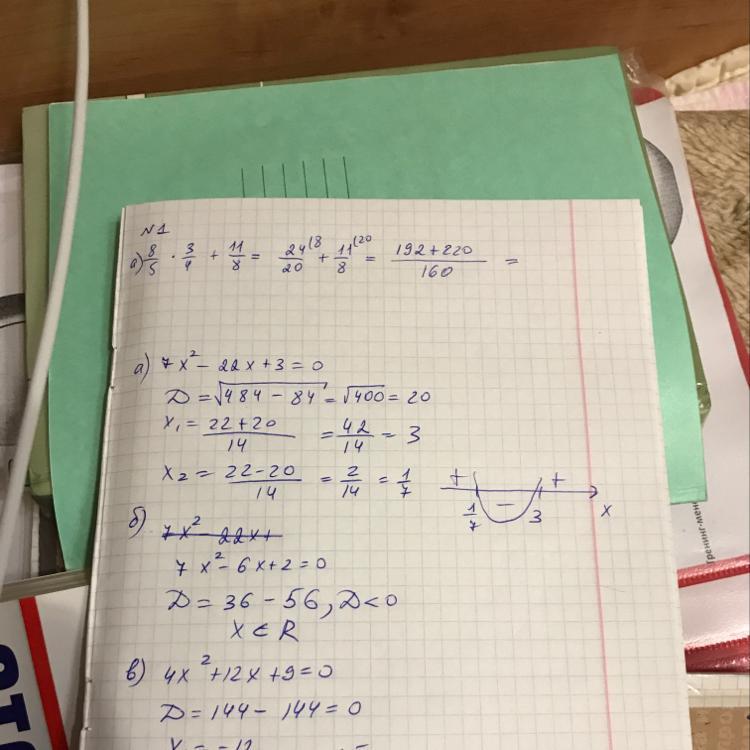 N1
а) 8/5 · 3/4 + 11/8 = 24(8/20 + 11(20/8 = 192+220/160 =
а) 7x² - 22x + 3 = 0
D = √484 - 84 = √400 = 20
x₁ = 22+20/14 = 42/14 = 3
x₂ = 22-20/14 = 2/14 = 1/7
+ - +
1/7 3 x
б) 7x² - 22x+
7x² - 6x + 2 = 0
D = 36 - 56, D < 0
X ∈ R
в) 4x² + 12x + 9 = 0
D = 144 - 144 = 0
X = -12 =
тренинг-мен